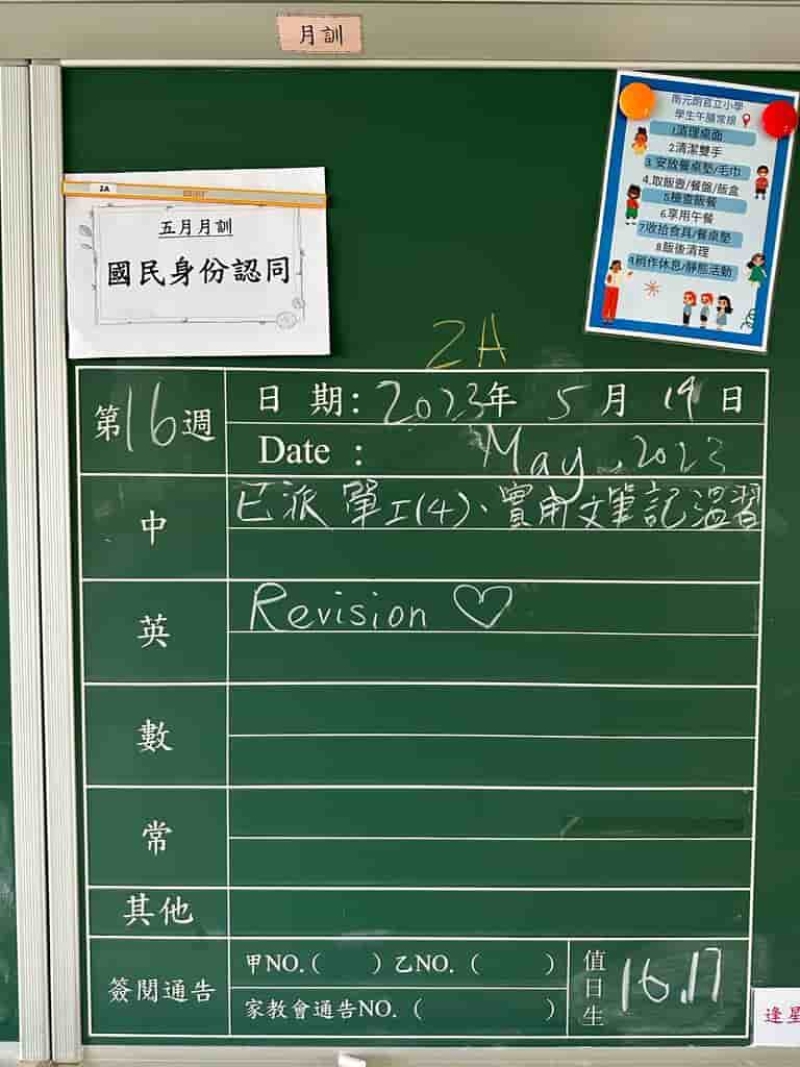 月訓
2A
五月月訓
國民身份認同
南元朗官立小學
學生午膳常規
1.清理桌面
2.清潔雙手
3.安放餐桌墊/毛巾
4.取飯壺/餐盤/飯盒
5.檢查飯餐
6.享用午餐
7.收拾食具/餐桌墊
8.飯後清理
9.稍作休息/靜態活動
2A
第16週
日 期: 2023年 5 月 19 日
Date : May, 2023
中
已派單工(4)、實用文筆記溫習
英
Revision ♡
數
常
其他
簽閱通告
甲NO.( ) 乙NO. ( )
家教會通告NO. ( )
值日生
16,17
逢星